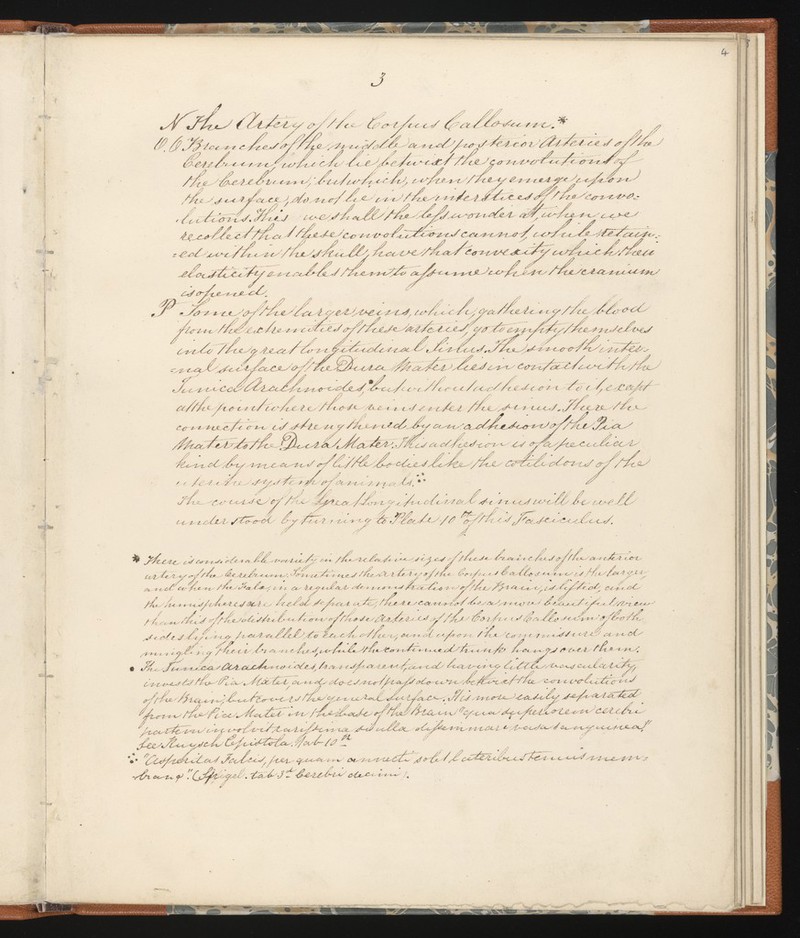 4
3
N The Artery of the Corpus Callosum.*
O.O Branches of the middle and posterior Arteries of the
Cerebrum, which lie betwixt the convolutions of
the Cerebrum; but which, when they emerge upon
the surface, do not lie in the interstices of the convo:
lutions. This we shall the less wonder at, when we
recollect that these convolutions cannot, while retain:
:ed within the skull, have that convexity which their
elasticity enables them to assume when the cranium
is opened.
P Some of the larger veins, which, gathering the blood
from the extremities of these arteries, go to empty themselves
into the great longitudinal Sinus. The smooth inter:
nal surface of the Dura Mater lies in contact with the
Tunica Arachnoides,• but without adhesion to it, except
at the point where those veins enter the sinus. There the
connection is strengthened by an adhesion of the Pia
Mater to the Dura Mater. This adhesion is of a peculiar
kind by means of little bodies like the cotilidons of the
uterine system of animals.∴
The course of the great Longitudinal sinus will be well
understood by turning to Plate 10th of this Fasciculus.
* There is considerable variety in the relative sizes of these branches of the anterior
artery of the Cerebrum. Sometimes the Artery of the Corpus Callosum is the larger,
and when the Falx, in a regular demonstration of the Brain, is lifted, and
the hemispheres are held separate, there cannot be a more beautiful view
than this of the distribution of those Arteries of the Corpus Callosum of both
sides lying parallel to each other, and upon the commissure and
mingling their branches, while the continued trunk hangs over them.
• The Tunica Arachnoides, transparent, and having little vascularity,
invests the Pia Mater, and does not pass down betwixt the convolutions
of the Brain; but covers the general surface. It is more easily separated
from the Pia Mater in the base of the Brain "quia superiorem cerebri
partem involvit
See Ruysch Epistola. Tab 10th
∴ "Asperitas Falcis, per quam annecti solet lateribus tenuis mem:
brana". (Spigel. tab 3d Cerebri decimi).